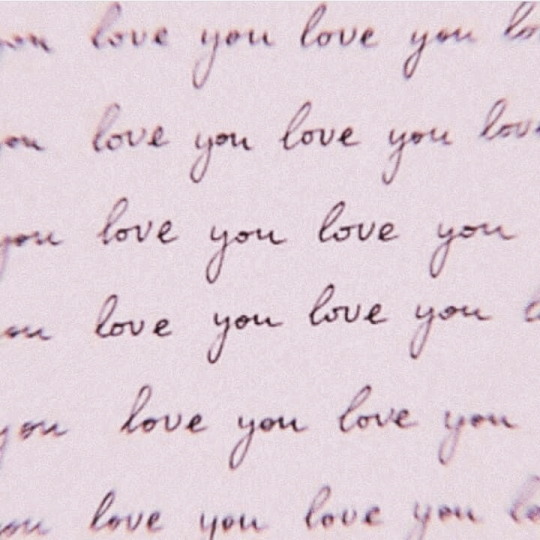 you love you love you
you love you love you love
you love you love you
you love you love you
you love you love you
you love you love you